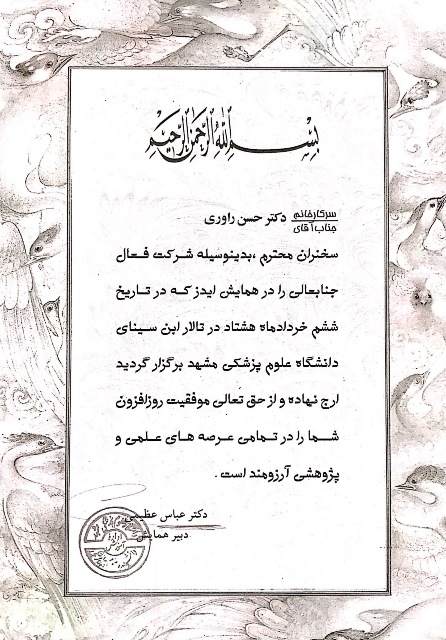 بسم الله الرحمن الرحیم
سرکارخانم
جناب آقای
دکتر حسن راوری
سخنران محترم ،بدینوسیله شرکت فعال
جنابعالی را در همایش ایدز که در تاریخ
ششم خردادماه هشتاد در تالار ابن سینای
دانشگاه علوم پزشکی مشهد برگزار گردید
ارج نهاده و از حق تعالی موفقیت روزافزون
شما را در تمامی عرصه های علمی و
پژوهشی آرزومند است .
دکتر عباس عظیمی
دبیر همایش